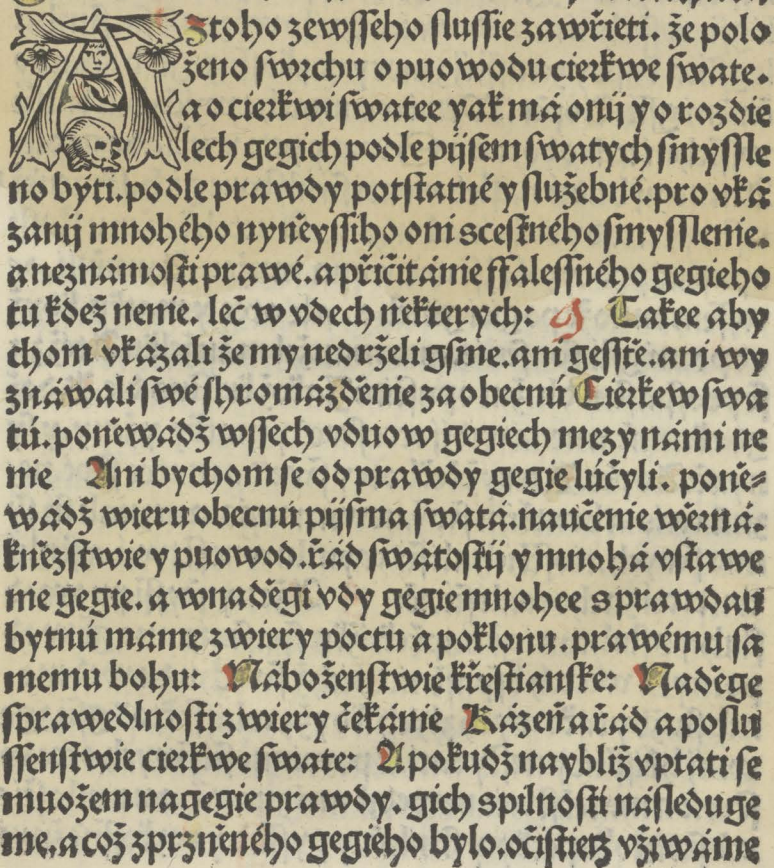 A ztoho zewsseho slussie zawřieti. že polo
ženo swrchu o puowodu cierkwe swate.
a o cierkwi swatee yak má onij y o rozdie
lech gegich podle pijsem swatych smyssle
no býti. podle prawdy potstatné y služebné. pro vká
zanij mnohého nyněyssiho omi scestného smysslenie.
a neznámosti prawé. a přičitánie ffalessného gegieho
tu kdež nenie. leč w vdech některych: Takee aby
chom vkázali že my nedrželi gsme. ani gesstě. ani wy
znáwali swé shromázděnie za obecnú Cierkew swa
tú. poněwádž wssech vduow gegiech mezy námi ne
nie Ani bychom se od prawdy gegie lúčyli. poně=
wádž wieru obecnú pijsma swatá. naučenie wěrná.
kněžstwie y puowod. řád swátostij y mnohá vstawe
nie gegie. a w naděgi vdy gegie mnohee s prawdau
bytnú máme z wiery poctu a poklonu. prawému sa
memu bohu: Náboženstwie křestianske: Naděge
sprawedlnosti z wiery čekánie Kázeň a řád a poslu
ssenstwie cierkwe swate: A pokudž naybliž vptati se
muožem na gegie prawdy. gich s pilnosti následuge
me. a což zprzněného gegieho bylo. očistietz vžiwáme